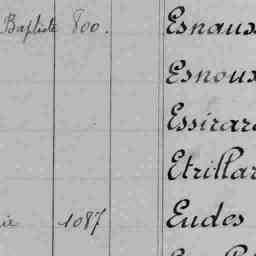 Baptiste 800. Esnaus
Esnoux
Essirar
Etrillar
1087 Eudes